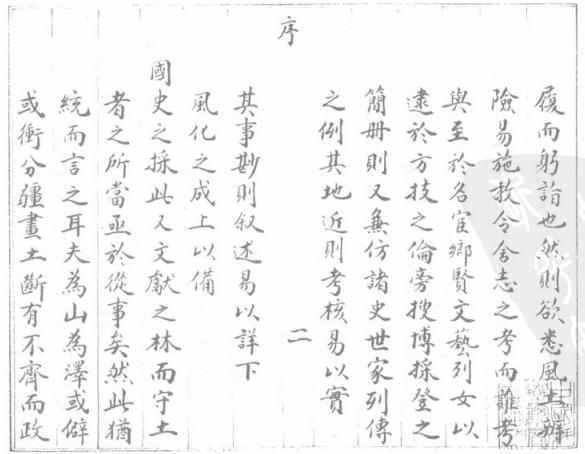 履而躬詣也然則欲悉風土辨
險易施教令舍志之考而誰考
與至於名宦鄉賢文藝列女以
逮於方技之倫旁搜博採登之
簡册則又兼仿諸史世家列傳
之例其地近則考核易以實
序
二
其事尠則叙述易以詳下
風化之成上以備
國史之採此又文獻之林而守土
者之所當亟於從事矣然此猶
統而言之耳夫為山為澤或僻
或衝分疆畫土斷有不齊而政